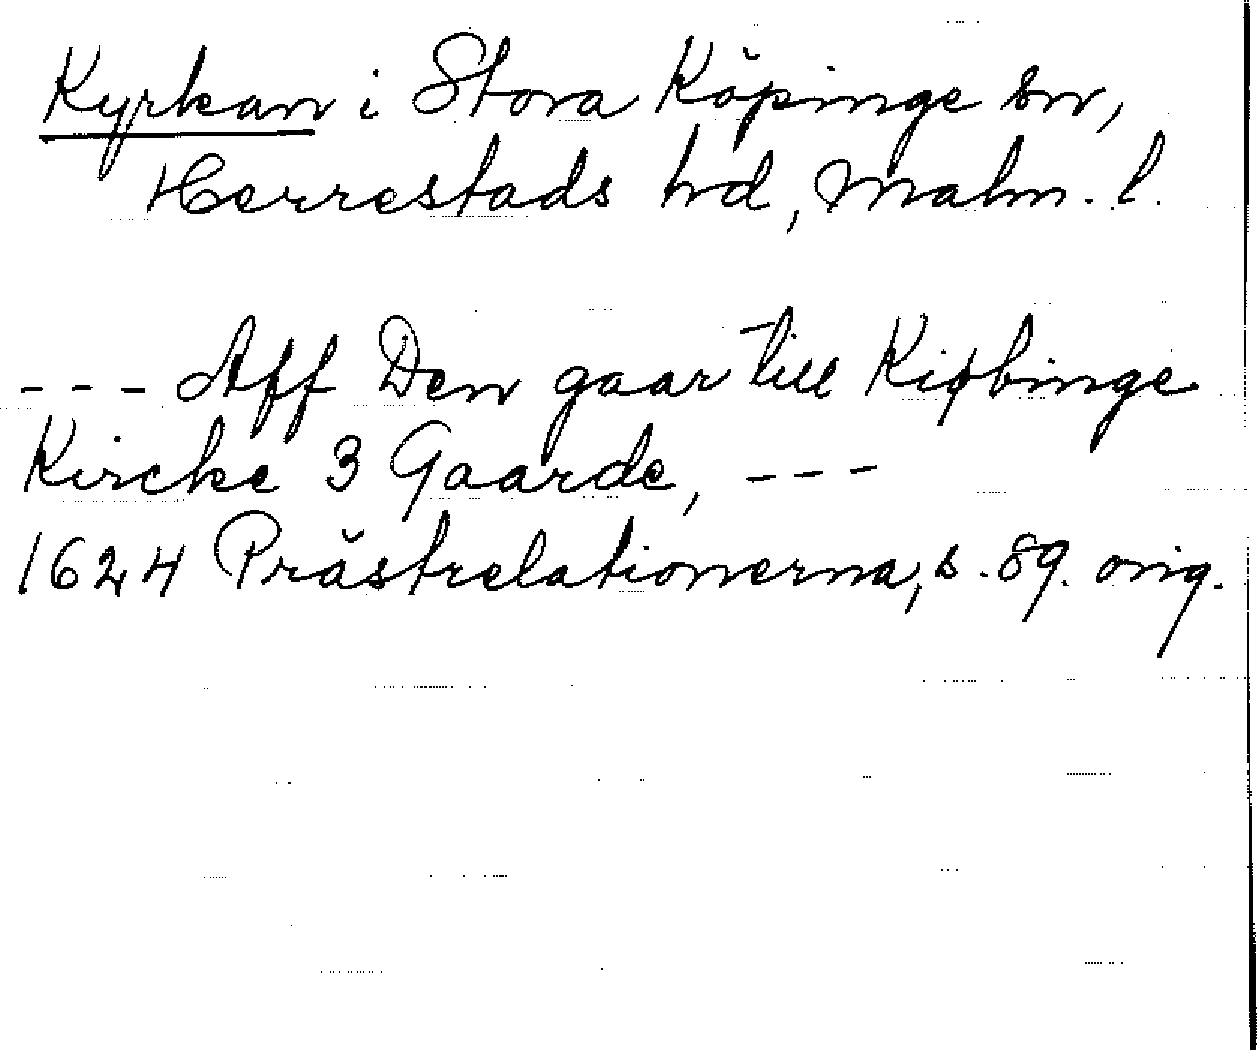 Kyrkan i Stora Köpinge sn,
Herrestads hd, Malm. l.
--- Aff Den gaar till Kiøbinge
Kircke 3 Gaarde, ---
1624 Prästrelationerna, s. 89. orig.